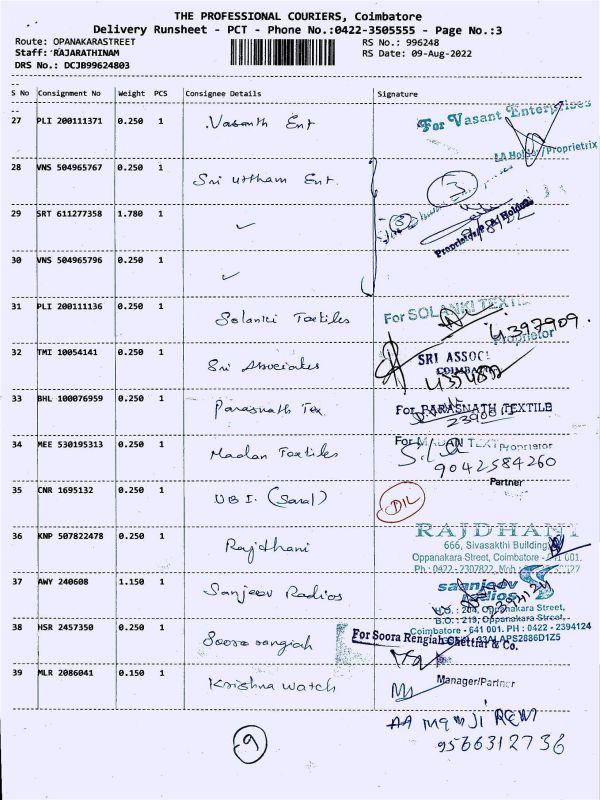 THE PROFESSIONAL COURIERS, Coimbatore
Delivery Runsheet - PCT - Phone No.:0422-3505555 - Page No.:3
Route: OPANAKARASTREET RS No.: 996248
Staff: RAJARATHINAM RS Date: 09-Aug-2022
DRS No.: DCJB99624803
S No Consignment No Weight PCS Consignee Details Signature
27 PLI 200111371 0.250 1 Vasanth Ent For Vasant Enterprises
LA Holder/Proprietrix
28 VNS 504965767 0.250 1 Sri Uttham Ent. 3
29 SRT 611277358 1.780 1 ✓ 3
30 VNS 504965796 0.250 1 ✓
31 PLI 200111136 0.250 1 Solanki Textiles For SOLANKI TEXTIL
Proprietor
32 TMI 10054141 0.250 1 Sri Associates SRI ASSOCI
33 BHL 100076959 0.250 1 Parasnath Tex For PARASNATH TEXTILE
34 MEE 530195313 0.250 1 Madan Textiles For MADAN TEXT Proprietor
9042584260
Partner
35 CNR 1695132 0.250 1 UBI. (Saral) DIL
36 KNP 507822478 0.250 1 Rajdhani RAJDHANI
666, Sivasakthi Building
Oppanakara Street, Coimbatore - 001.
Ph : 0422 - 2307822,
37 AWY 240608 1.150 1 Sanjeev Radios saanjeev
Radios
H.O. : 204, Oppanakara Street,
B.O. : 219, Oppanakara Street,
Coimbatore - 641 001. PH : 0422 - 2394124
38 HSR 2457350 0.250 1 Soora rangiah For Soora Rengiah Chettiar & Co.
39 MLR 2086041 0.150 1 Krishna watch Manager/Partner
9566312736
9